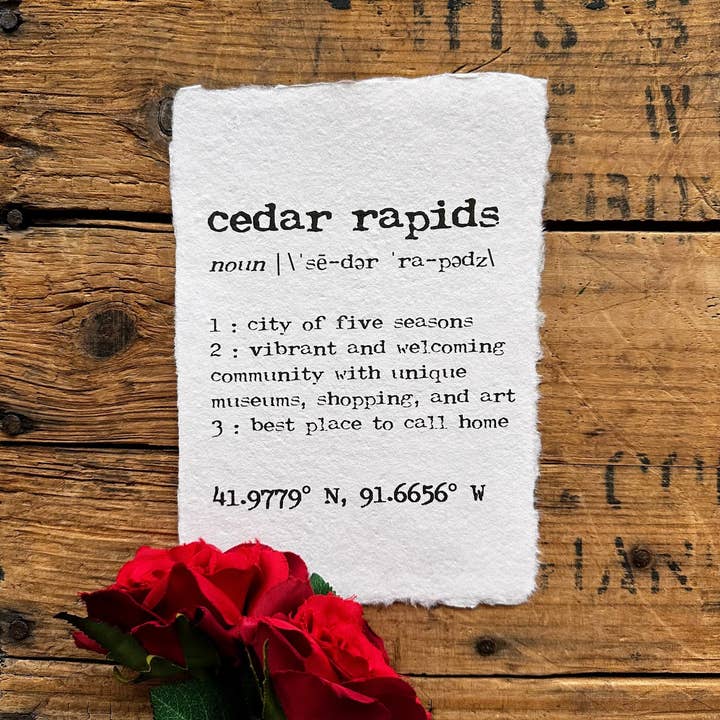 cedar rapids
noun | \ˈsē-dər ˈra-pədz\
1 : city of five seasons
2 : vibrant and welcoming
community with unique
museums, shopping, and art
3 : best place to call home
41.9779° N, 91.6656° W